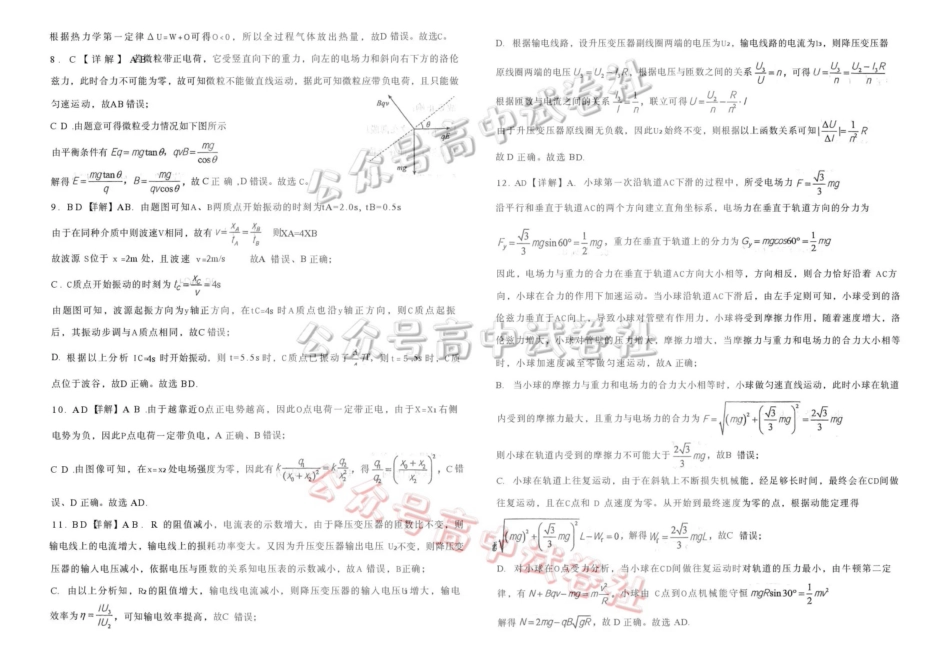 根据热力学第一定律 ΔU=W+Q可得Q<0，所以全过程气体放出热量，故D错误。故选C。
8. C【详解】AB. 若微粒带正电荷，它受竖直向下的重力，向左的电场力和斜向右下方的洛伦
兹力，此时合力不可能为零，故可知微粒不能做直线运动，据此可知微粒应带负电荷，且只能做
匀速运动，故AB错误；
CD.由题意可得微粒受力情况如下图所示
Bqv
θ
qE
mg
由平衡条件有 Eq=mgtanθ，qvB=mg/cosθ
解得 E=mgtanθ/q，B=mg/qvcosθ，故C正确,D错误。故选C。
9. BD【详解】AB. 由题图可知A、B两质点开始振动的时刻为tA=2.0s, tB=0.5s
由于在同种介质中则波速V相同，故有 v=x_A/t_A=x_B/t_B 则XA=4XB
故波源S位于 x=2m 处，且波速 v=2m/s 故A错误、B正确；
C. C质点开始振动的时刻为 t_C=x_C/v=4s
由题图可知，波源起振方向为y轴正方向，在tC=4s时A质点也沿y轴正方向，则C质点起振
后，其振动步调与A质点相同，故C错误；
D. 根据以上分析 tC=4s 时开始振动. 则 t=5.5s时，C质点已振动了 则 t=5.5s时，C质
点位于波谷，故D正确。故选 BD.
10. AD【详解】AB.由于越靠近O点正电势越高，因此O点电荷一定带正电，由于X=X₁右侧
电势为负，因此P点电荷一定带负电，A 正确、B错误；
CD.由图像可知，在x=x₂处电场强度为零，因此有 k q₁/(x₀+x₂)²=k q₂/x₂²，得 q₁/q₂=((x₀+x₂)/x₂)²，C错
误、D正确。故选 AD.
11. BD【详解】AB. R 的阻值减小，电流表的示数增大，由于降压变压器的匝数比不变，则
输电线上的电流增大，输电线上的损耗功率变大。又因为升压变压器输出电压 U₂不变，则降压变
压器的输入电压减小，依据电压与匝数的关系知电压表的示数减小，故A 错误，B正确；
C. 由以上分析知，R₂的阻值增大，输电线电流减小，则降压变压器的输入电压U₃增大，输电
效率为 η=IU₃/IU₂，可知输电效率提高，故C 错误；
D. 根据输电线路，设升压变压器副线圈两端的电压为U₂，输电线路的电流为I₃，则降压变压器
原线圈两端的电压 U₃=U₂-I₃R，根据电压与匝数之间的关系 U₃/U=n，可得 U=U₃/n=(U₂-I₃R)/n
根据匝数与电流之间的关系 I₃/I=1/n，联立可得 U=U₂/n-R/n²·I
由于升压变压器原线圈无负载，因此U₂始终不变，则根据以上函数关系可知|ΔU/ΔI|=1/n² R
故 D 正确。故选 BD.
12. AD【详解】A. 小球第一次沿轨道AC下滑的过程中，所受电场力 F=√3/3 mg
沿平行和垂直于轨道AC的两个方向建立直角坐标系，电场力在垂直于轨道方向的分力为
F_y=√3/3 mgsin60°=1/2 mg，重力在垂直于轨道上的分力为 G_y=mgcos60°=1/2 mg
因此，电场力与重力的合力在垂直于轨道AC方向大小相等，方向相反，则合力恰好沿着 AC方
向，小球在合力的作用下加速运动。当小球沿轨道AC下滑后，由左手定则可知，小球受到的洛
伦兹力垂直于AC向上，导致小球对管壁有作用力，小球将受到摩擦力作用，随着速度增大，洛
伦兹力增大，小球对管壁的压力增大，摩擦力增大，当摩擦力与重力和电场力的合力大小相等
时，小球加速度减至零做匀速运动，故A 正确；
B. 当小球的摩擦力与重力和电场力的合力大小相等时，小球做匀速直线运动，此时小球在轨道
内受到的摩擦力最大，且重力与电场力的合力为 F=√((mg)²+(√3/3 mg)²)=2√3/3 mg
则小球在轨道内受到的摩擦力不可能大于 2√3/3 mg，故B 错误；
C. 小球在轨道上往复运动，由于在斜轨上不断损失机械能，经足够长时间，最终会在CD间做
往复运动，且在C点和 D 点速度为零。从开始到最终速度为零的点，根据动能定理得
√((mg)²+(√3/3 mg)²) L-W_f=0，解得 W_f=2√3/3 mgL，故C 错误；
D. 对小球在O点受力分析，当小球在CD间做往复运动时对轨道的压力最小，由牛顿第二定
律，有 N+Bqv-mg=m v²/R，小球由 C点到O点机械能守恒 mgRsin30°=1/2 mv²
解得 N=2mg-qB√gR，故 D 正确。故选 AD.
公众号高中试卷社
公众号高中试卷社
公众号高中试卷社
公众号高中试卷社